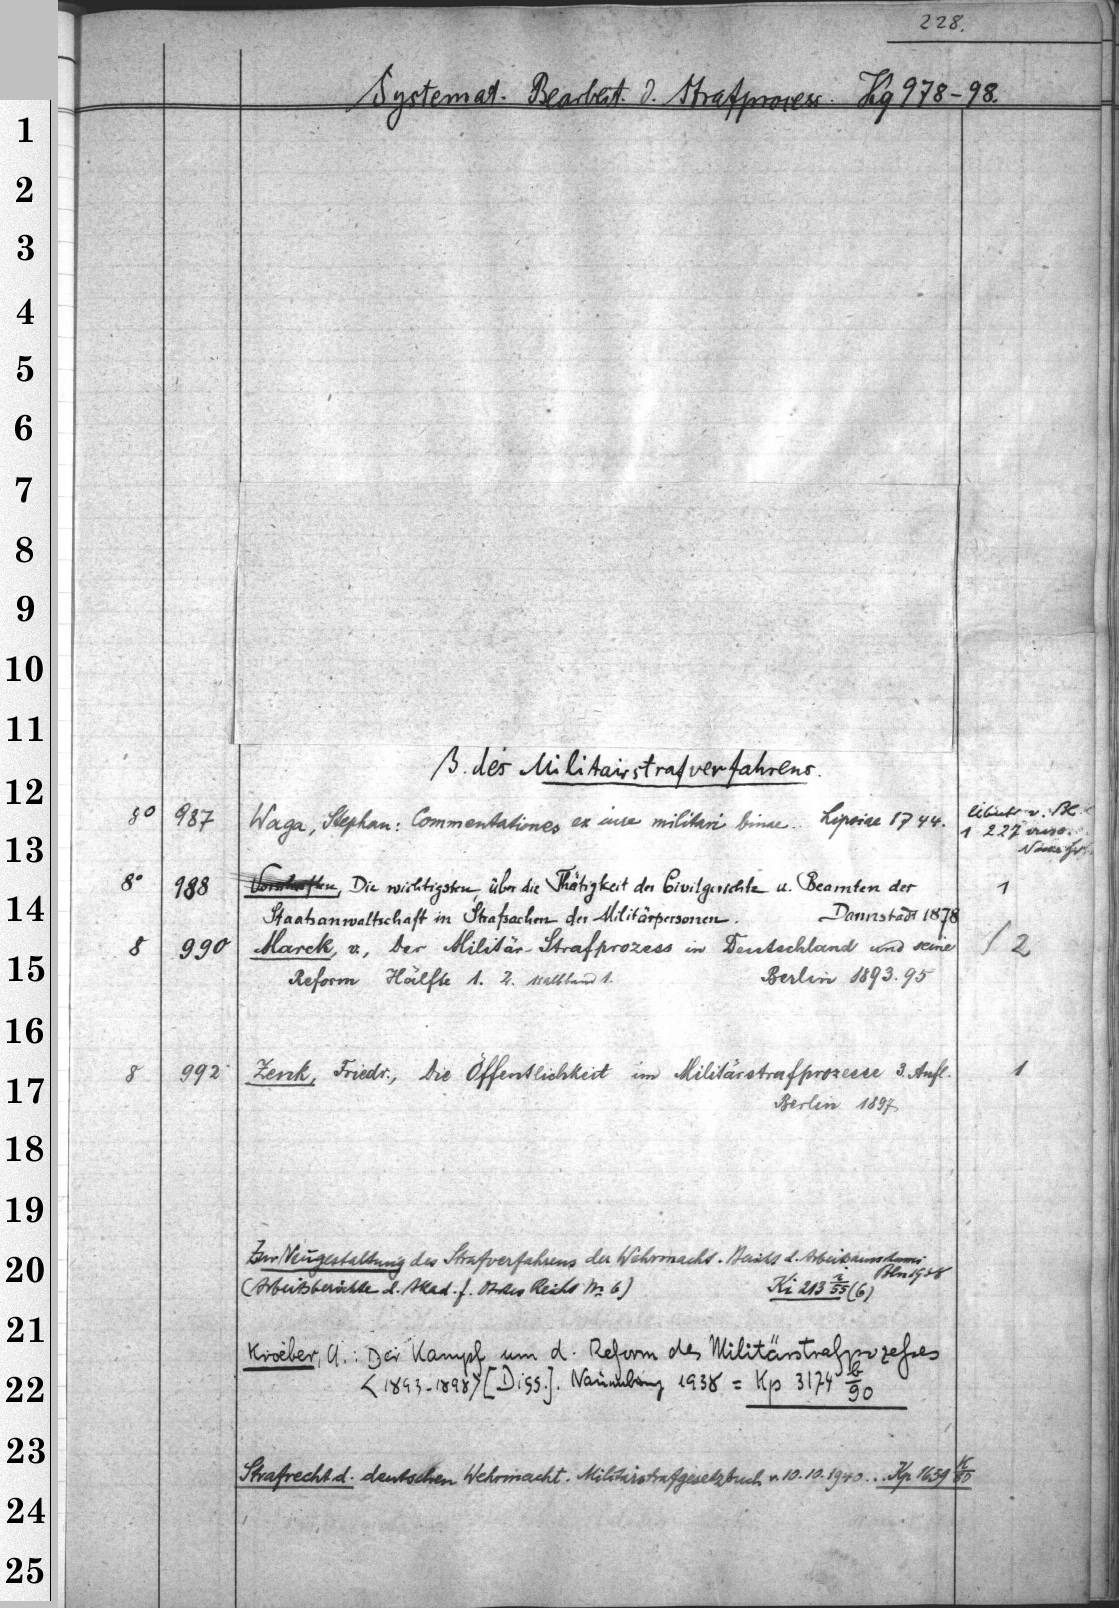 228.
Systemat. Bearbeit. d. Strafprocess. Kq 978-98.
β. des Militairstrafverfahrens.
8° 987 Waga, Stephan: Commentationes ex iure militari binae. Lipsiae 1744.
1 227
8° 988 Vorschriften, Die wichtigsten, über die Thätigkeit der Civilgerichte u. Beamten der 1
Staatsanwaltschaft in Strafsachen der Militärpersonen. Darmstadt 1878
8 990 Marck, v., Der Militär-Strafprozess in Deutschland und seine 2
Reform Hälfte 1. 2. Halbband 1. Berlin 1893.95
8 992 Zenk, Friedr., Die Öffentlichkeit im Militärstrafprozesse 3. Aufl. 1
Berlin 1897
Zur Neugestaltung des Strafverfahrens der Wehrmacht.
Bln 1938
(Arbeitsberichte d. Akad. f. Dt. Reichs Nr 6) Ki 213 /55 (6)
Kroeber, A.: Der Kampf um d. Reform des Militärstrafprozesses
<1893-1898> [Diss.]. 1938 = Kp 3174 b/90
Strafrecht d. deutschen Wehrmacht. Militärstrafgesetzbuch v. 10.10.1940... Kp 1659